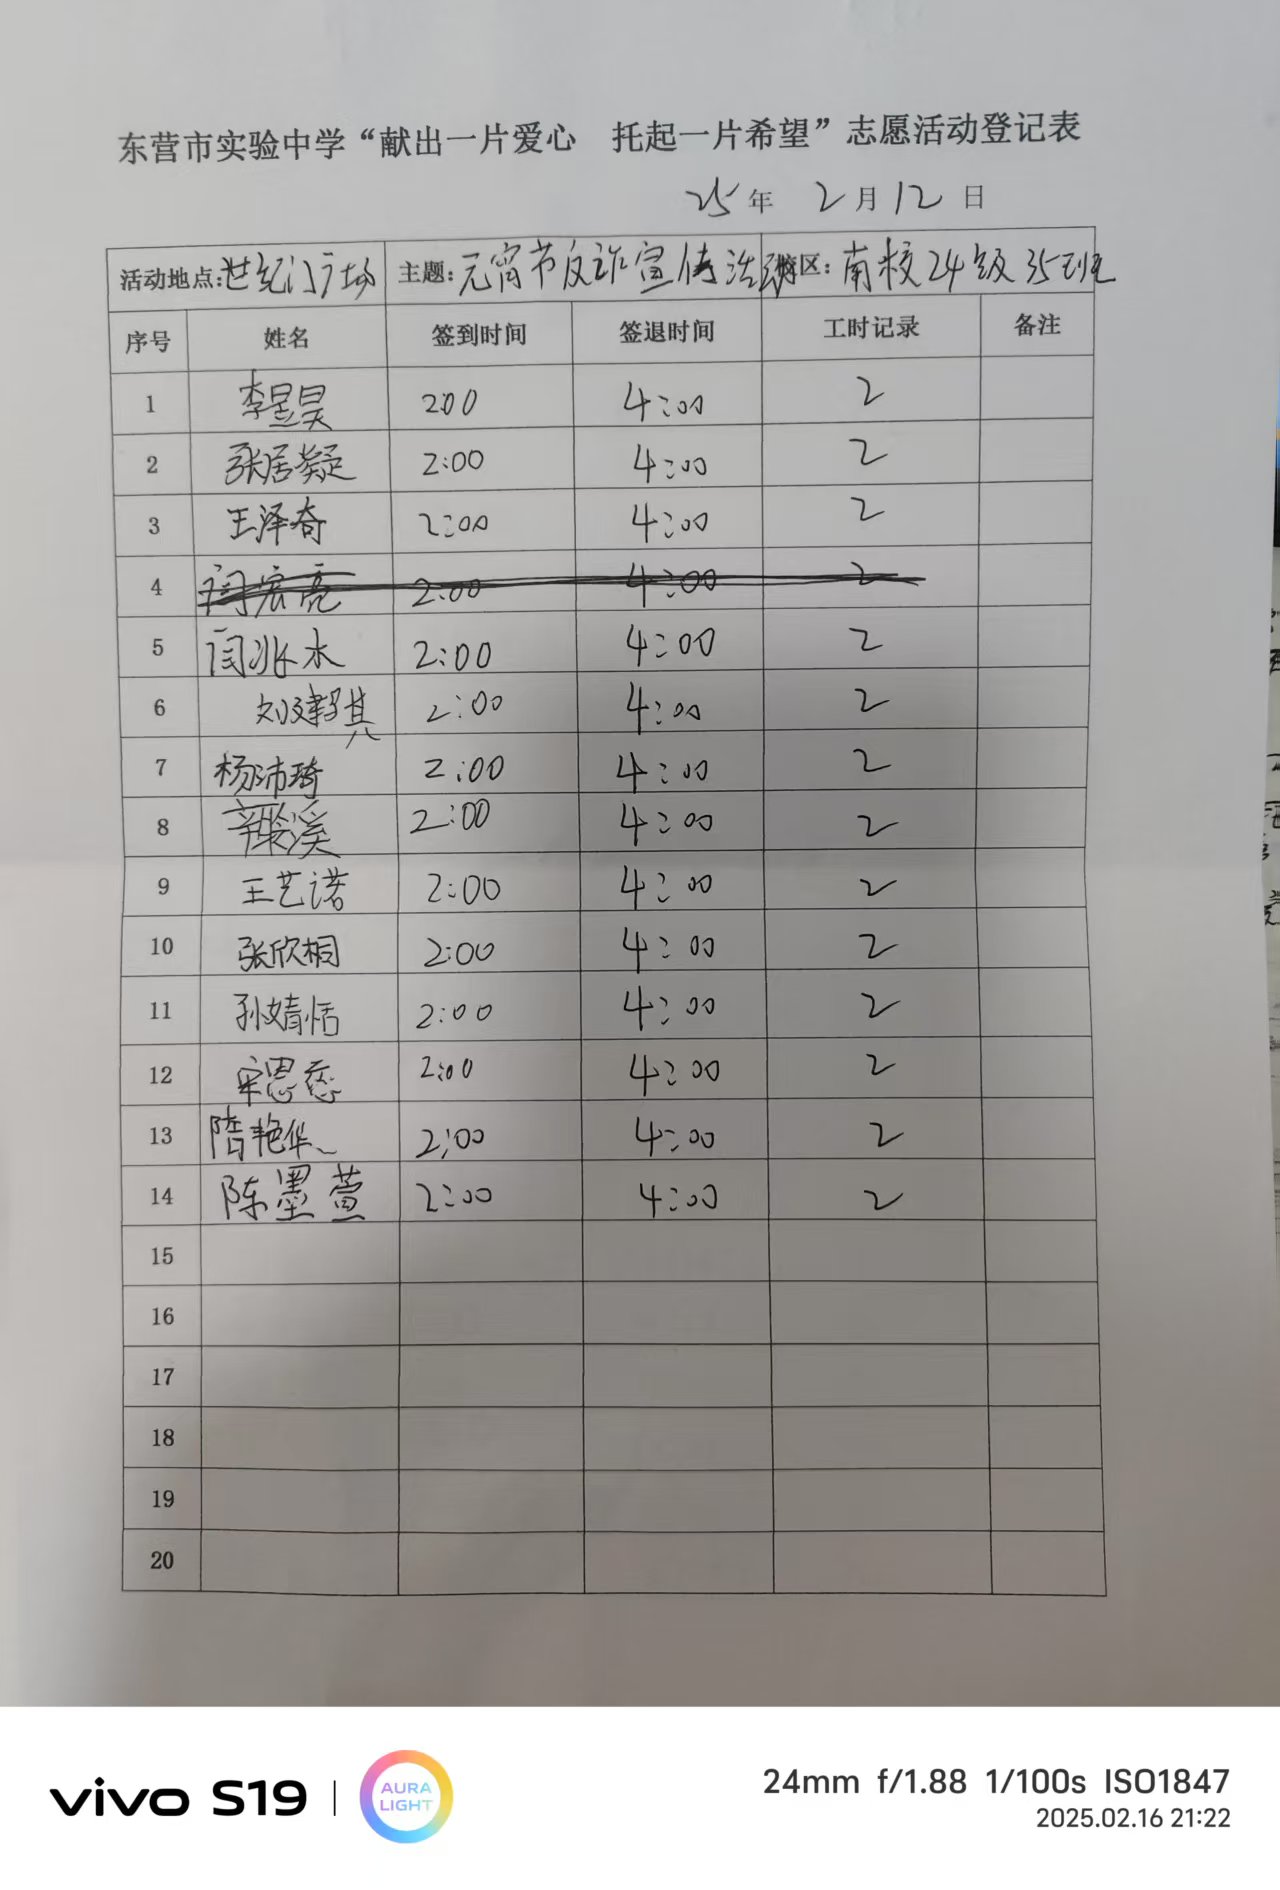 东营市实验中学“献出一片爱心 托起一片希望”志愿活动登记表
25年 2月12日
活动地点:世纪门广场 主题:元宵节反诈宣传活动 校区:南校24级35班
序号 姓名 签到时间 签退时间 工时记录 备注
1 李昱昊 200 4:00 2
2 张居凝 2:00 4:00 2
3 王泽奇 2:00 4:00 2
4 闫宏亮 2:00 4:00 2
5 闫兆水 2:00 4:00 2
6 刘建其 2:00 4:00 2
7 杨沛琦 2:00 4:00 2
8 2:00 4:00 2
9 王艺诺 2:00 4:00 2
10 张欣桐 2:00 4:00 2
11 孙婧恬 2:00 4:00 2
12 宋恩慈 2:00 4:00 2
13 隋艳华 2:00 4:00 2
14 陈墨萱 2:00 4:00 2
15
16
17
18
19
20
vivo S19 | AURA LIGHT
24mm f/1.88 1/100s ISO1847
2025.02.16 21:22